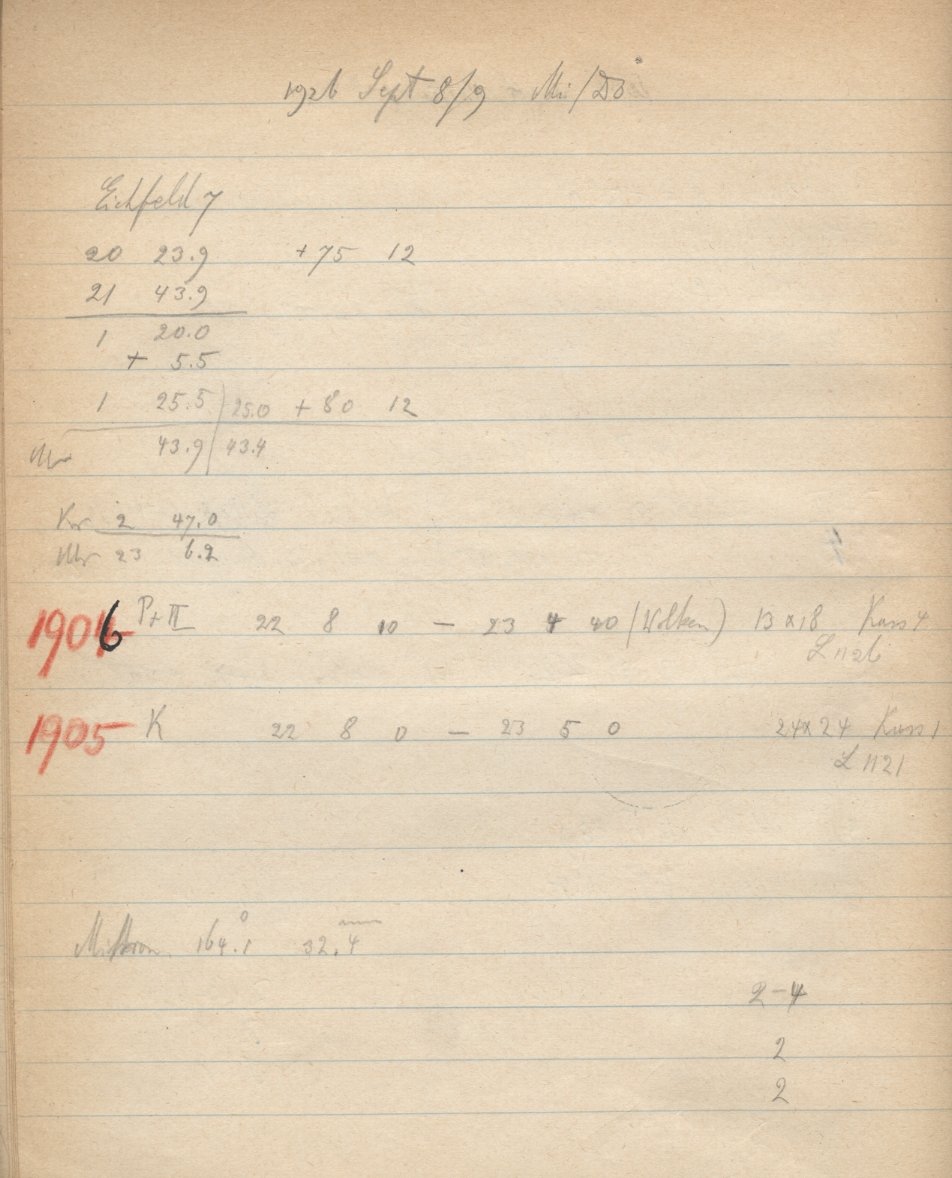 1926 Sept 8/9 Mi/Do
Eichfeld 7
20 23.9 +75 12
21 43.9
1 20.0
+ 5.5
1 25.5 25.0 + 80 12
43.9 43.4
Kr 2 47.0
23 6.2
1906 Pr II 22 8 10 — 23 4 40 (Wolken) 13x18 Kass 4
L 1126
1905 K 22 8 0 — 23 5 0 24x24 Kass 1
L 1121
164.1° 32.4 mm
2-4
2
2